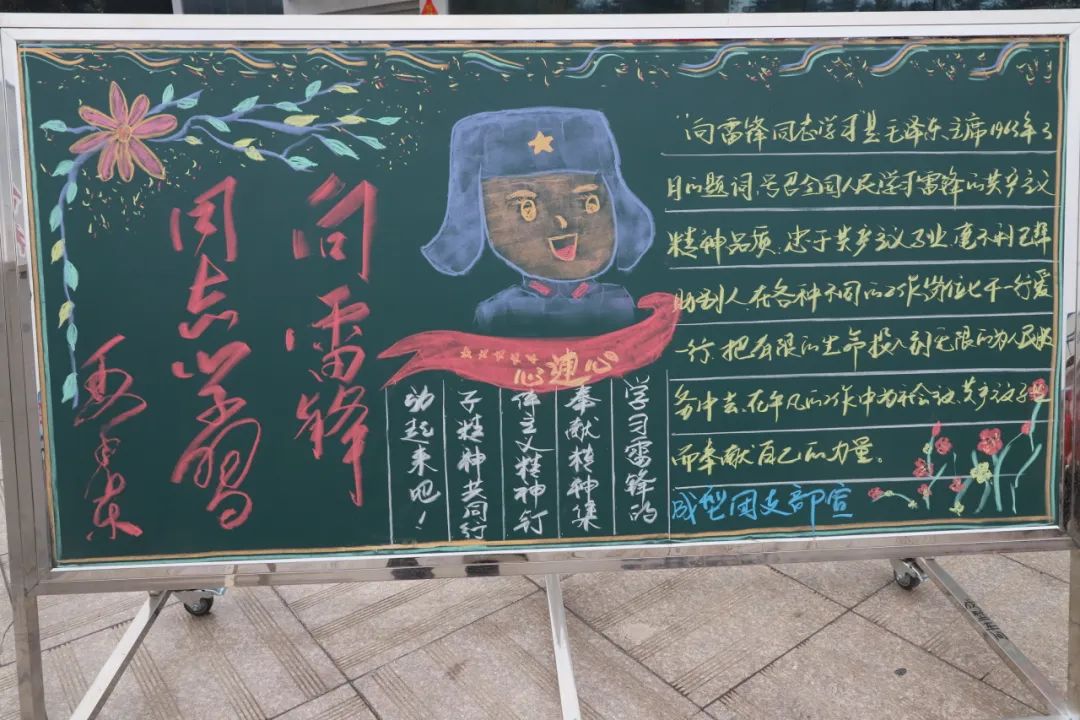 向雷锋
同志学习
毛泽东
心連心
学习雷锋的
奉献精神集
体主义精神钉
子精神共同行
动起来吧！
"向雷锋同志学习是毛泽东主席1963年3
月的题词,号召全国人民学习雷锋的共产主义
精神品质,忠于共产主义事业,毫不利己
助别人,在各种不同的工作岗位上干一行爱
一行,把有限的生命投入到无限的为人民服
务中去,在平凡的工作中为社会主义,共产主义事业
而奉献自己的力量。
成型团支部宣